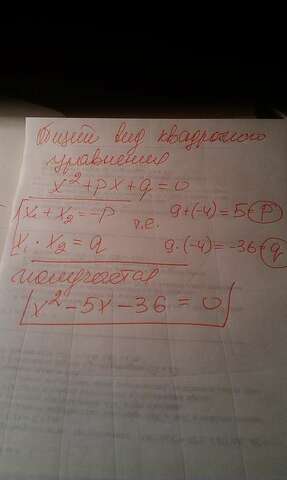 Общий вид квадратного
уравнения
x² + px + q = 0
x₁ + x₂ = -p т.е. 9+(-4)=5-p
x₁ · x₂ = q 9·(-4)=-36-q
получается
x² - 5x - 36 = 0